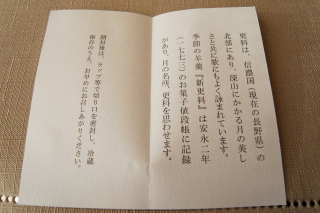 更科は、信濃国（現在の長野県）の
北部にあり、深山にかかる月の美し
さと共に歌にもよく詠まれています。
季節の羊羹『新更科』は安永二年
（一七七三）のお菓子値段帳に記録
があり、月の名所、更科を思わせます。
開封後は、ラップ等で切り口を密封し、冷蔵
保存のうえ、お早めにお召しあがりください。